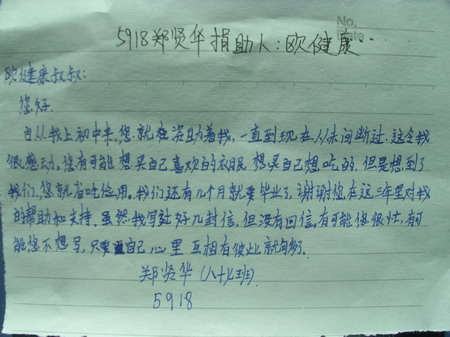 No.
Date
5918郑贤华捐助人:欧健康
欧健康叔叔:
您好
自从我上初中来,您就在资助着我,一直到现在从未间断过,这令我
很感动,您有可能想买自己喜欢的衣服 想买自己想吃的,但是想到了
我们,您就省吃俭用。我们还有几个月就要毕业了,谢谢您在这三年里对我
的帮助和支持。虽然我写过好几封信,但没有回信,有可能您很忙,有可
能您不想写,只要自己心里互相有彼此就有够。
郑贤华(八十七班)
5918